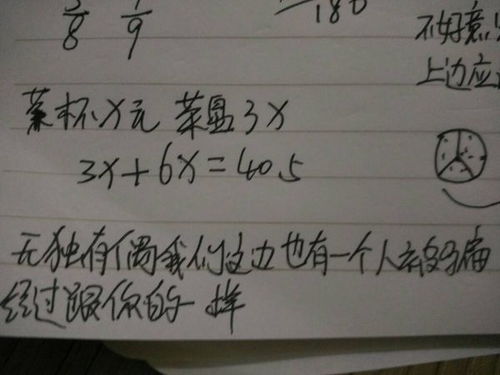 5/8 1/9
180
不好意
上边应
菜杯x元 菜盘3x
3x+6x=40.5
无独有偶我们这边也有一个人被马骗
经过跟你的一样